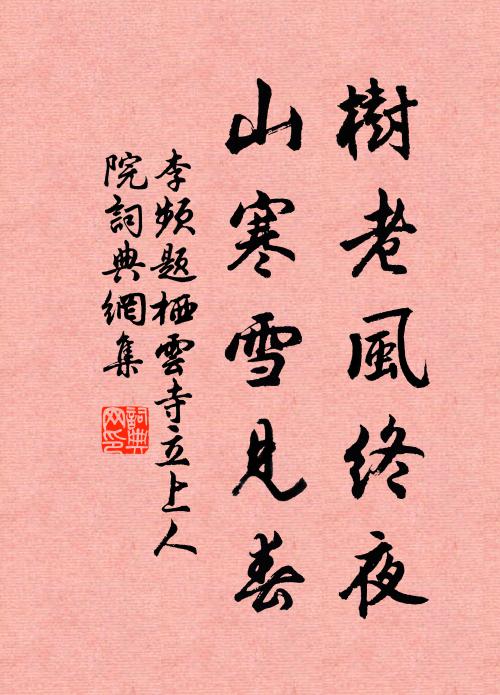 樹老風終夜
山寒雪見春
李頻題栖雲寺立上人
院詞典網集
詞典網印